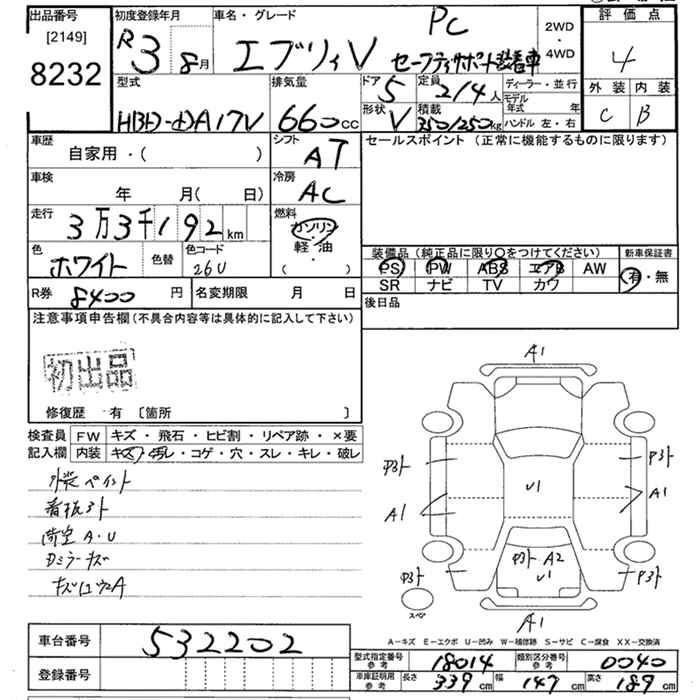 出品番号 初度登録年月 車名・グレード PC 2WD・4WD 評価点
[2149] R3 8月 エブリィV セーフティサポート装着車 4
8232
型式 排気量 ドア 5 定員 2/4人 ディーラー・並行 外装 内装
モデル年式 年
A17V 660cc 形状 V 積載 350/250kg ハンドル 左・右 C B
車歴 シフト セールスポイント(正常に機能するものに限ります)
自家用・( ) AT
車検 冷房
年 月( 日) AC
走行 3万3千192km 燃料
ガソリン
軽・油
( )
色 ホワイト 色替 色コード 26U
装備品(純正品に限り○をつけてください) 新車保証書
PS PW ABS エアB AW 有・無
SR ナビ TV カワ
R券 8400円 名変期限 月 日
後日品
注意事項申告欄(不具合内容等は具体的に記入して下さい)
初出品
修復歴 有 〔箇所 〕
検査員 FW キズ・飛石・ヒビ割・リペア跡・×要
記入欄 内装 キズ・汚レ・コゲ・穴・スレ・キレ・破レ
外装ペイント
看板ヌト
荷室A・U
Dミラーキズ
A1
U1
A1
A1
A2
U1
スペア
A1
A−キズ E−エクボ U−凹み W−補修跡 S−サビ C−腐食 XX−交換済
車台番号 532202
登録番号
型式指定番号 参考 18014 類別区分番号 参考 0040
車庫証明用 参考 長さ 339cm 幅 147cm 高さ 189cm